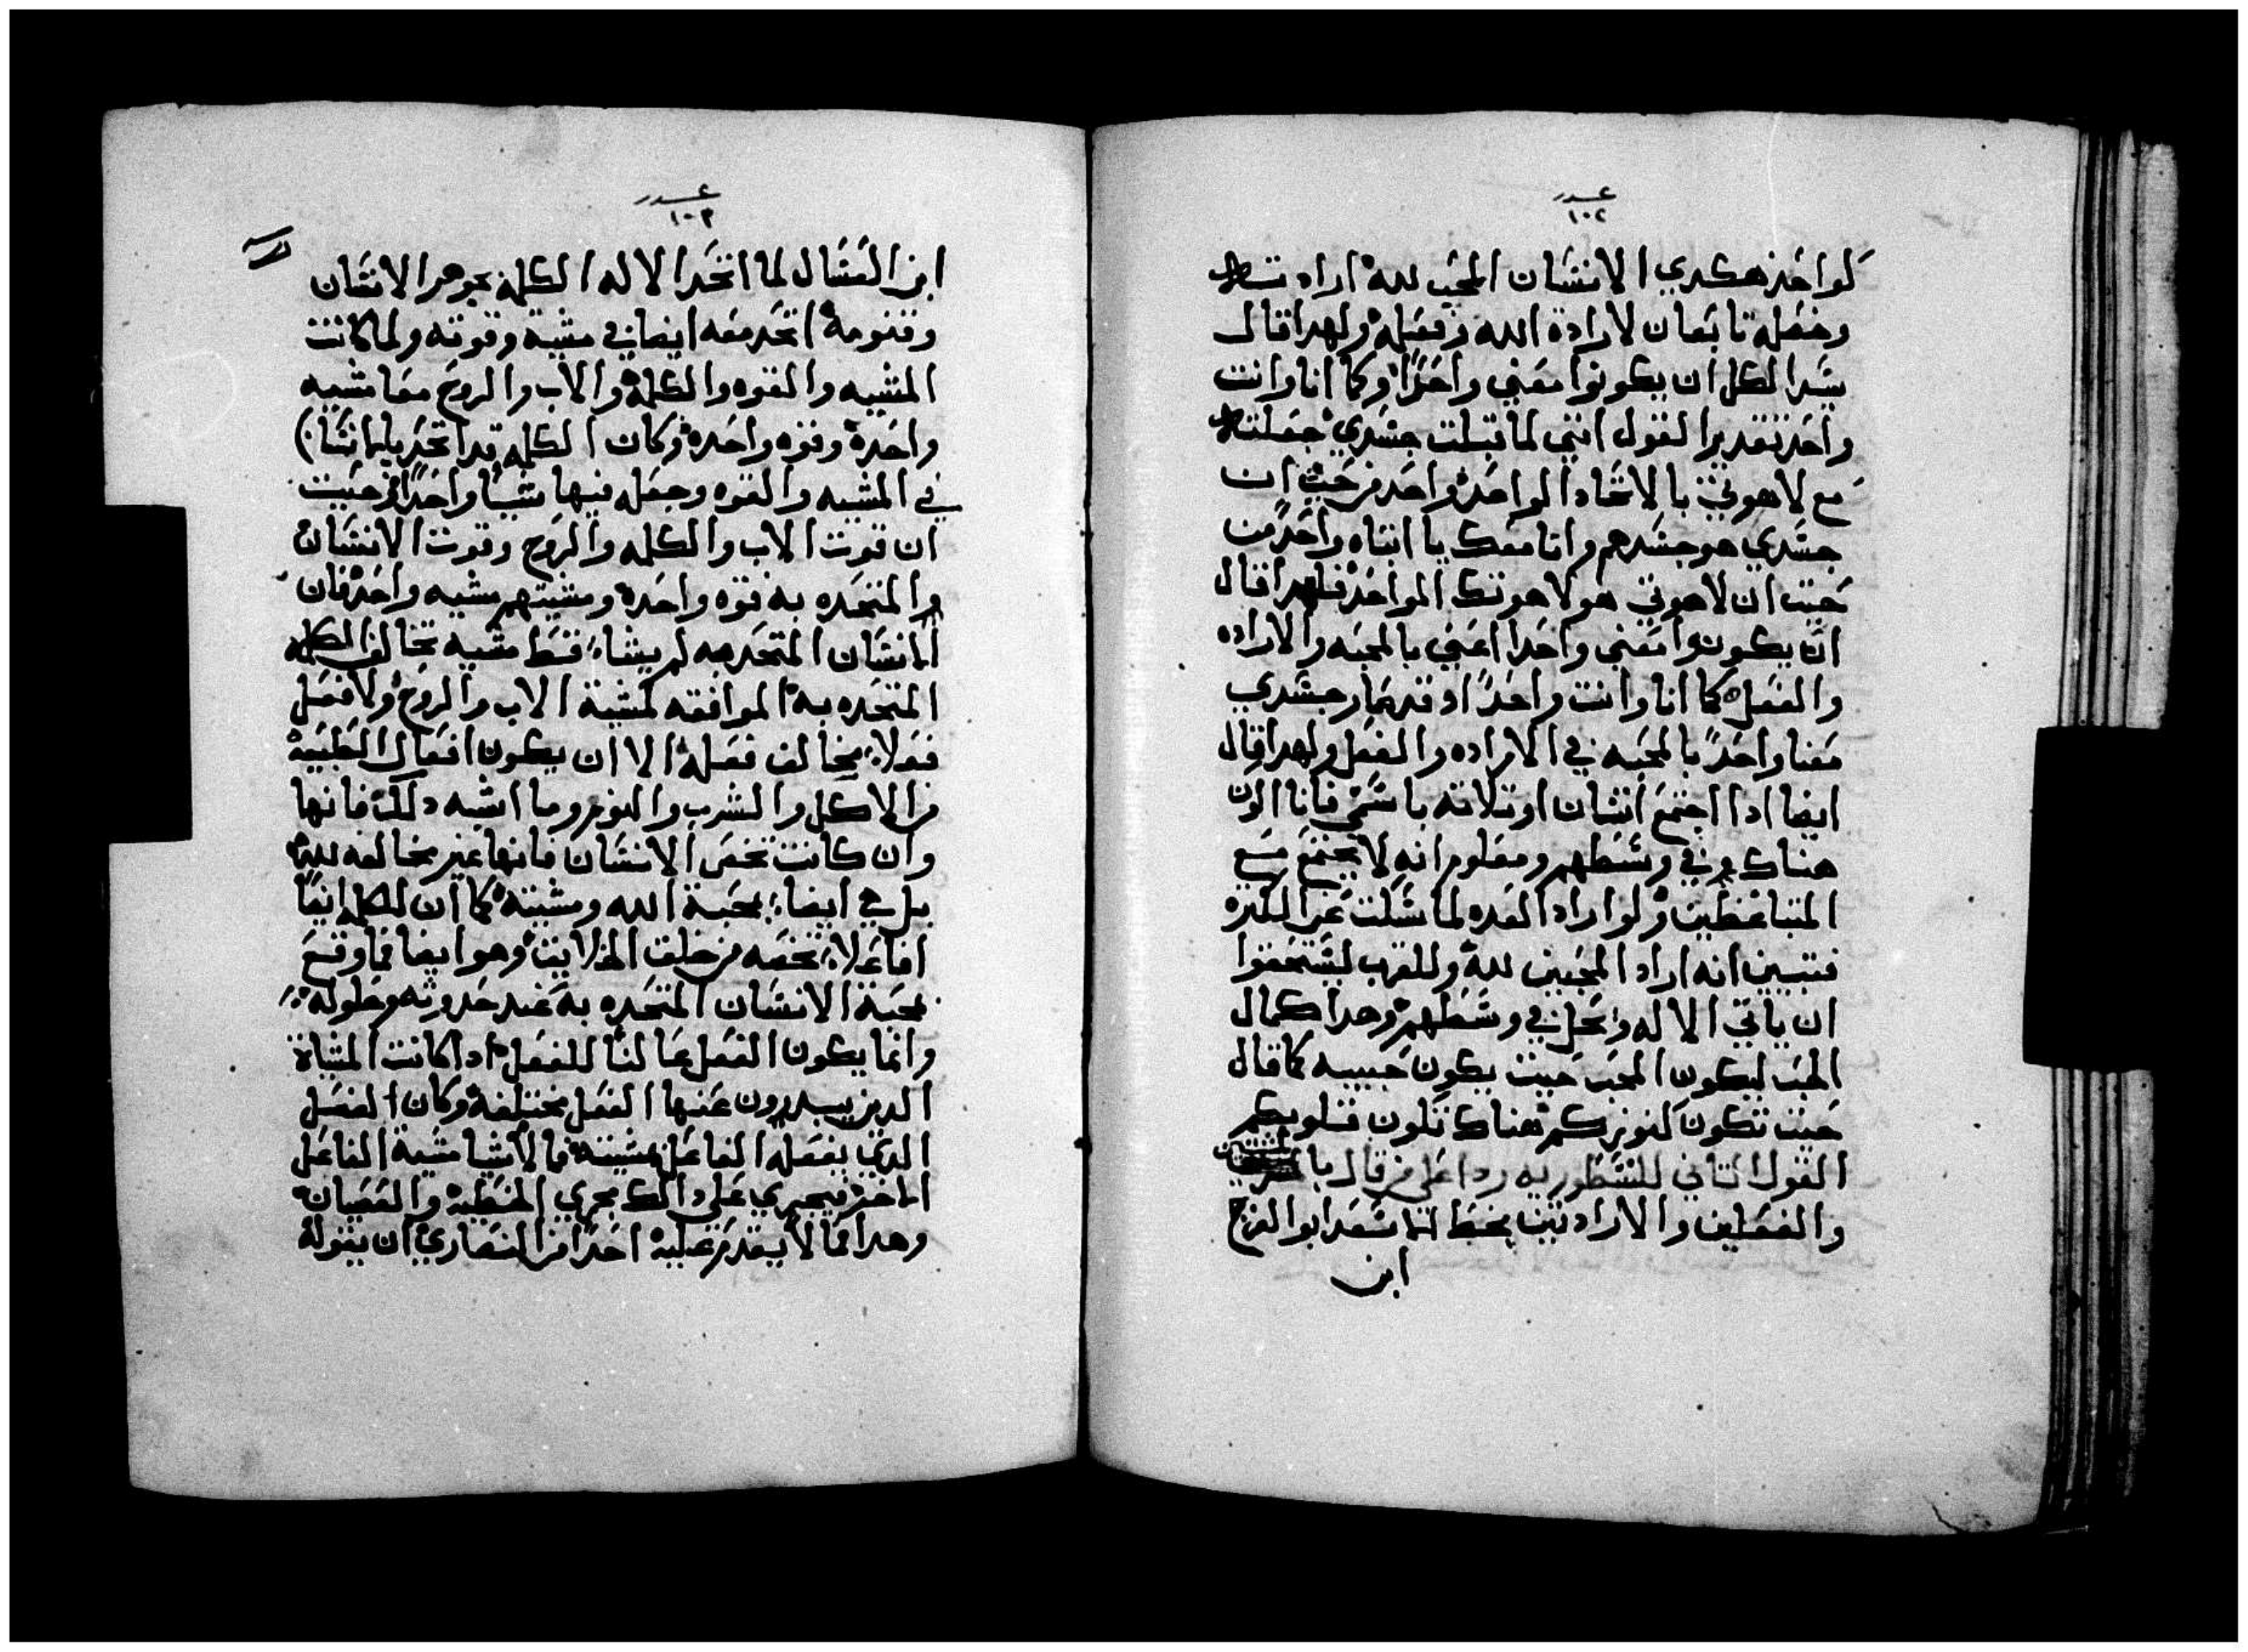 عدد
١٠٢
كواحد هكدي الانسان المحب لله اراد
وفعله تابعان لارادة الله وفعله ولهدا قال
الكل ان يكونوا معني واحدًا وكما انا وانت
واحد تقدير القول انني لما قبلت جسدي جعلته
مع لاهوتي بالاتحاد الواحد واحد من حيث ان
جسدي هو جسدهم وانا معك يا ابتاه واحدًا من
حيت ان لاهوتي هو لاهوتك الواحد فلهدا قال
ان يكونوا معني واحدا اعني بالمحبه والاراده
والفعل كما انا وانت واحدًا اد قد صار جسدي
معنا واحدًا بالمحبه في الاراده والفعل ولهدا قال
ايضا ادا اجتمع اتنان او تلاته باسمي فانا اكون
هناك في وسطهم ومعلوم انه لا يجتمع مع
المتباغضين ولو اراد العده لما سكت عن الكتره
فتبين انه اراد المحبين لله وللقريب ليستحقوا
ان ياتي الاله ويحل في وسطهم وهدا كمال
الحب ليكون المحب حيت يكون حبيبه كما قال
حيت تكون كنوزكم هناك تكون قلوبكم
القول التاني للنسطوريه ردا علي من قال بالمشيتين
والفعلين والارادتين بخط ابو الفرج
ابن
عدد
١٠٣
ابن العسال لما اتحد الاله الكلمة بجوهر الانسان
وقنومه اتحد معه ايضا في مشيته وقوته ولما كانت
المشيه والقوه والكلمة والاب والروح معا مشيه
واحدة وقوه واحده وكان الكلمه قد اتحد بالانسان
في المشيه والقوه وجعله فيها شيًا واحدًا من حيت
ان قوت الاب والكلمه والروح وقوت الانسان
والمتحده به قوه واحدة ومشيتهم مشيه واحده فان
الانسان المتحد به لم يشاء قط مشيه تخالف الكلمه
المتحده به الموافقه لمشية الاب والروح ولا فعل
فعلاً يخالف فعله الا ان يكون افعال الطبيعه
من الاكل والشرب والنوم وما اشبه دلك فانها
وان كانت تخص الانسان فانها غير مخالفه لله
بل هي ايضا بمحبة الله ومشيته كما ان للكلمه ايضًا
افاعلاً تخصه من خلقت الخلايق وهو ايضا فما وقع
بمحبة الانسان المتحده به عند حدوته وحلوله
وانما يكون الفعل مخالفًا للفعل ادا كانت المشياة
الدين يصدرون عنها الفعل مختلفة وكان الفعل
الدي يفعله الفاعل بمشيته فالاشيا مشية الفاعل
الاخر فيجري علي دالك مجري الخطية والعصيان
وهدا مما لا يقدم عليه احدًا من النصاري ان يقوله